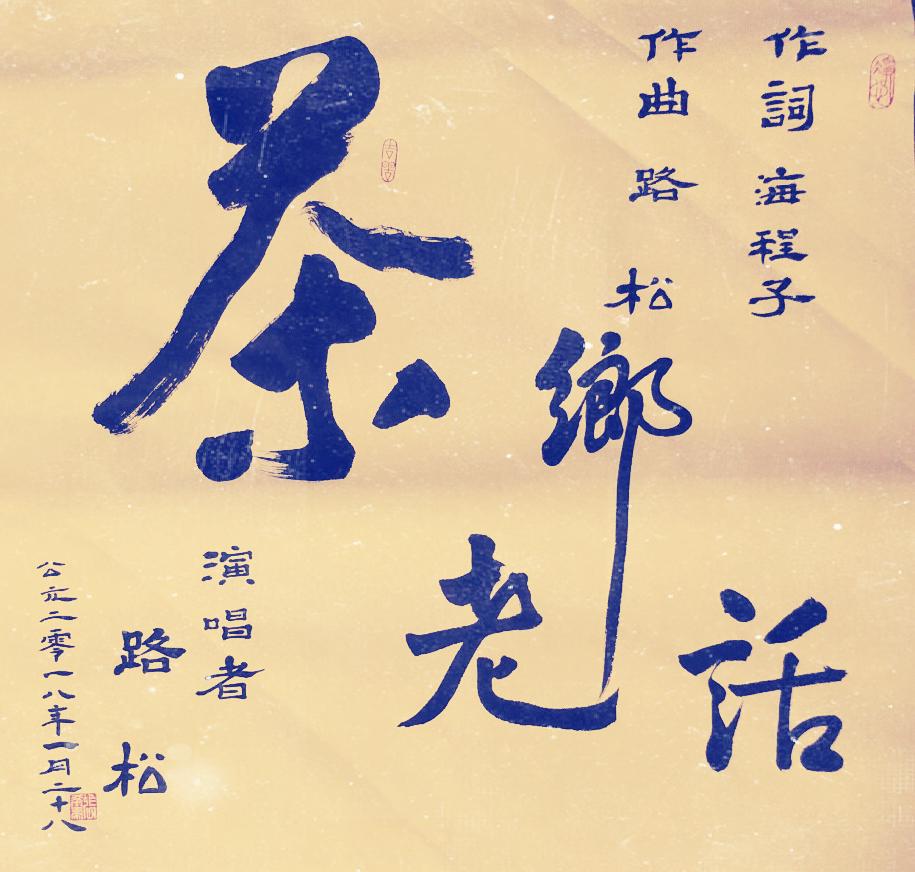 作詞 海程子
作曲 路松
茶鄉老話
演唱者
路松
公元二零一八年一月二十八